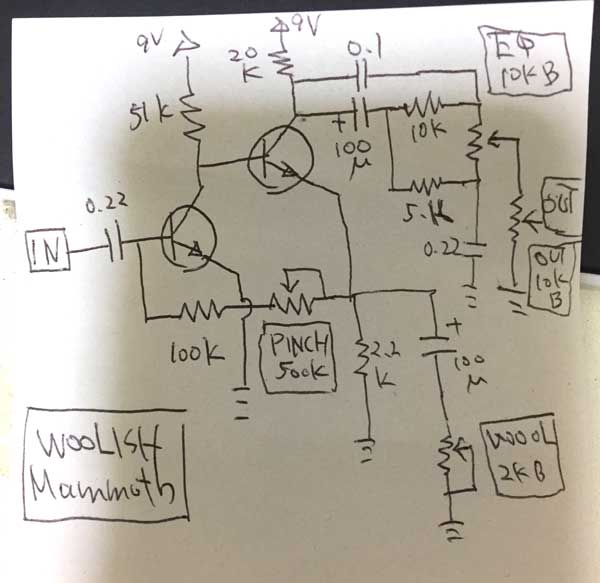 9V
9V
20
K
0.1
EQ
10KB
51k
+
100
μ
10k
0.22
IN
5.1K
0.22
OUT
OUT
10K
B
100k
PINCH
500K
2.2
K
+
100
μ
WOOL
2KB
WOOLISH
Mammoth